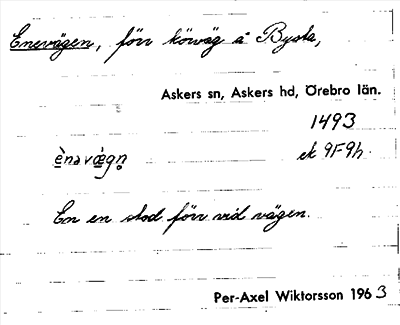 Enevägen, förr körväg å Bysta,
Askers sn, Askers hd, Örebro län.
1493
ek 9F9h.
ènavä̀gn̥
En en stod förr vid vägen.
Per-Axel Wiktorsson 1963